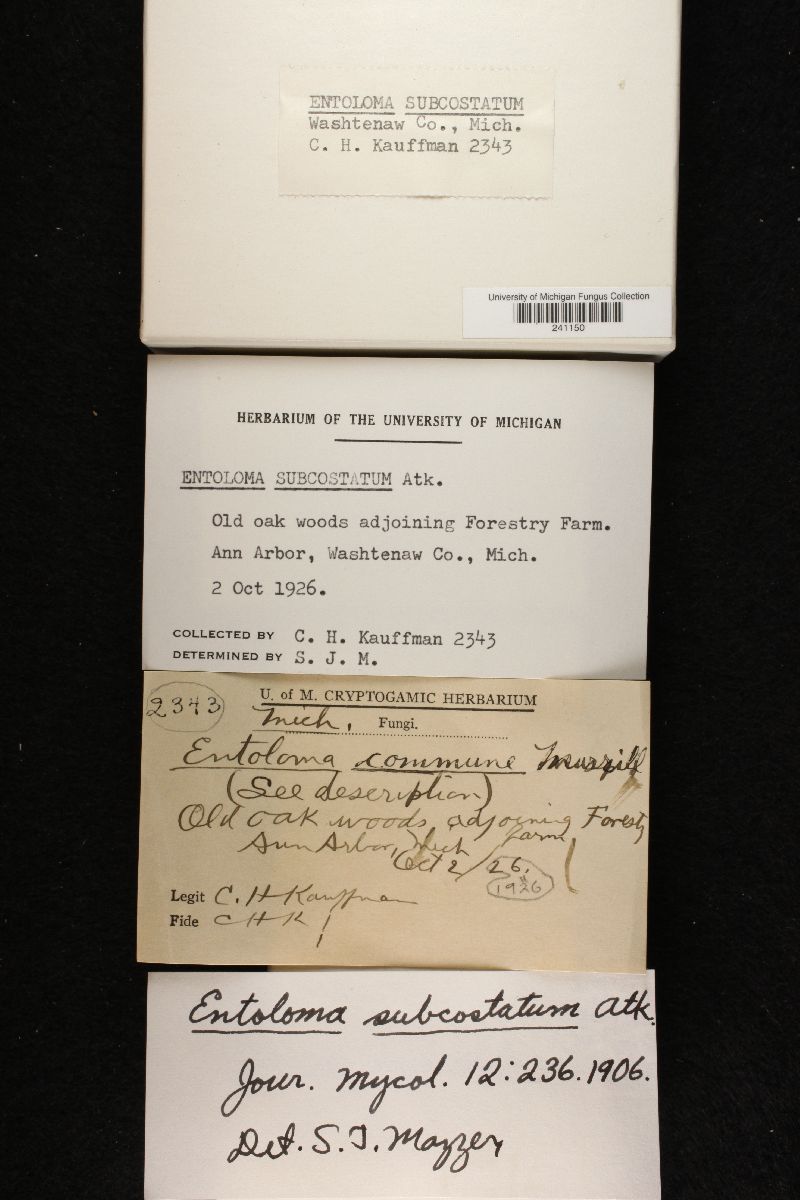 ENTOLOMA SUBCOSTATUM
Washtenaw Co., Mich.
C. H. Kauffman 2343
University of Michigan Fungus Collection
241150
HERBARIUM OF THE UNIVERSITY OF MICHIGAN
ENTOLOMA SUBCOSTATUM Atk.
Old oak woods adjoining Forestry Farm.
Ann Arbor, Washtenaw Co., Mich.
2 Oct 1926.
COLLECTED BY C. H. Kauffman 2343
DETERMINED BY S. J. M.
2343
U. of M. CRYPTOGAMIC HERBARIUM
Mich. Fungi.
Entoloma commune Murrill
(See description)
Old oak woods adjoining Forestry
farm
Ann Arbor, Mich
Oct 2/26.
1926
Legit C. H Kauffman
Fide C H K !
Entoloma subcostatum Atk.
Jour. Mycol. 12:236. 1906.
Det. S. J. Mazzer